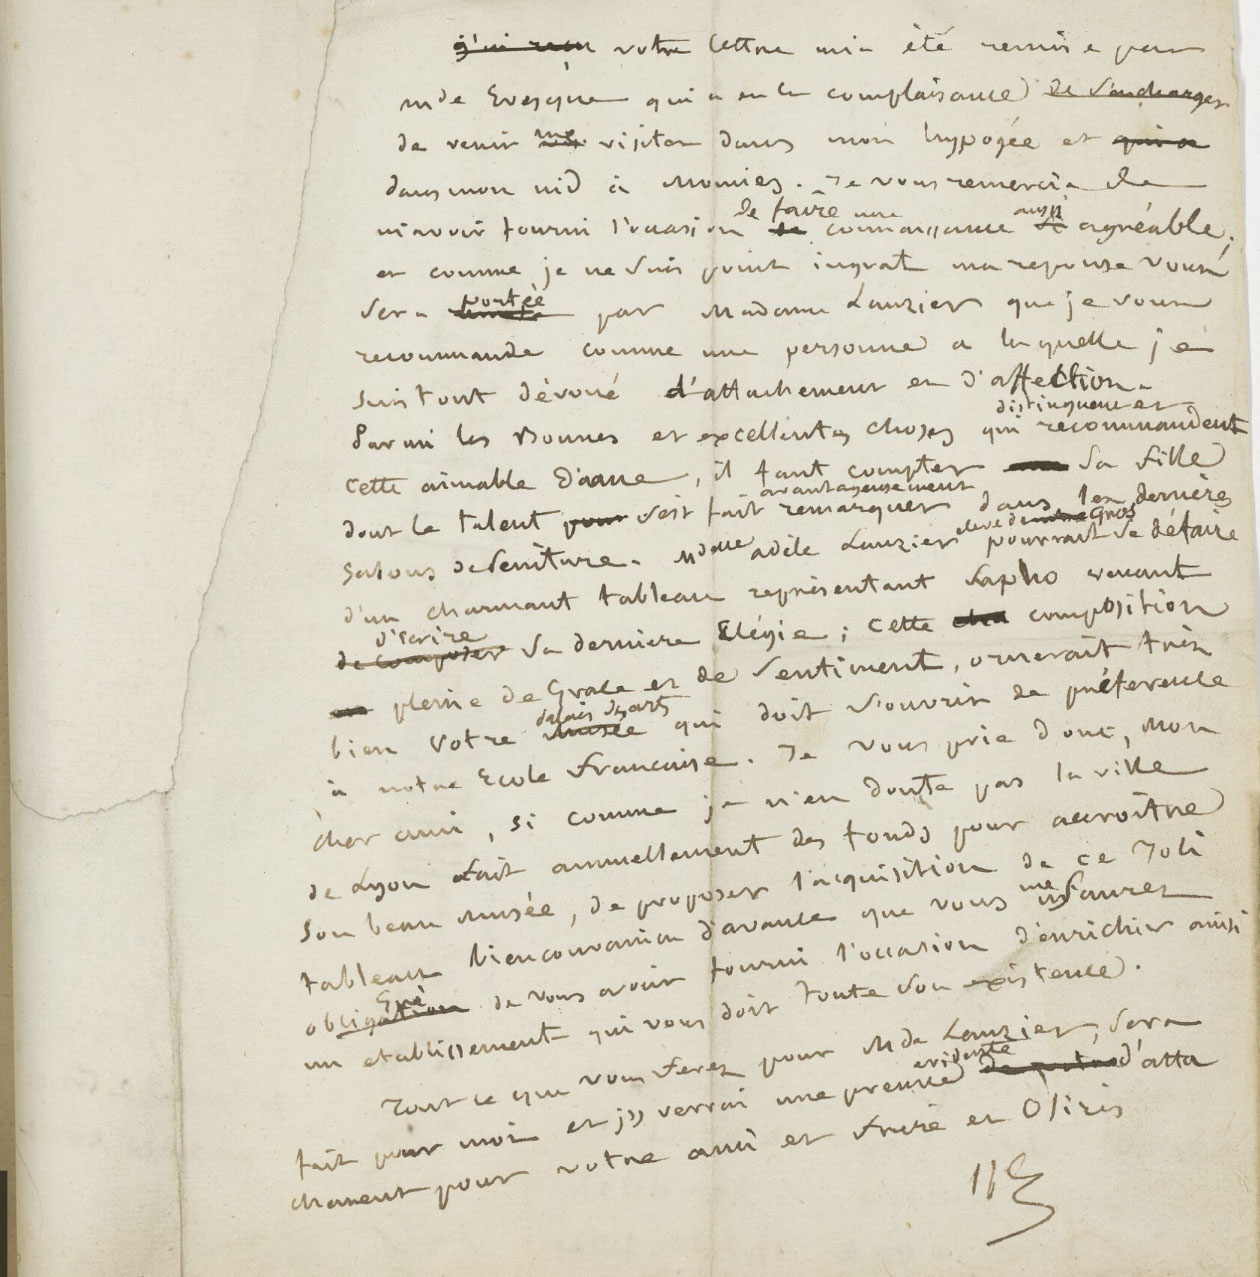 j'ai reçu votre lettre m'a été remise par
mde Evesque qui a eu la complaisance de s'en charger
de venir me visiter dans mon hypogée et qui a
dans mon nid à Momies. Je vous remercie de
m'avoir fourni l'occasion de faire une connaissance aussi agréable;
et comme je ne suis point ingrat ma reponse vous
sera portée par Madame Lauzier que je vous
recommande comme une personne a laquelle je
suis tout dévoué d'attachement et d'affection.
Parmi les Bonnes et excellentes choses qui distinguent et recommandent
cette aimable Dame, il faut compter sa fille
dont le talent s'est fait avantageusement remarquer dans les derniers
Salons de Peinture. Mdelle adèle Lauzier eleve de Gros pourrait se défaire
d'un charmant tableau représentant Sapho venant
de composer d'écrire sa derniere Elégie; cette composition
pleine de Grace et de sentiment, ornerait très
bien votre musée palais des arts qui doit s'ouvrir de préférence
à notre Ecole francaise. Je vous prie donc, Mon
cher ami, si comme je n'en doute pas la ville
de Lyon fait annuellement des fonds pour accroître
son beau Musée, de proposer l'acquisition de ce Joli
tableau bien convaincu d'avance que vous me saurez
obligation Gré de vous avoir fourni l'occasion d'enrichir ainsi
un etablissement qui vous doit toute son existence.
Tout ce que vous ferez pour Mde Lauzier, sera
fait pour moi et j'y verrai une preuve evidente d'atta
chement pour votre ami et frère en Osiris